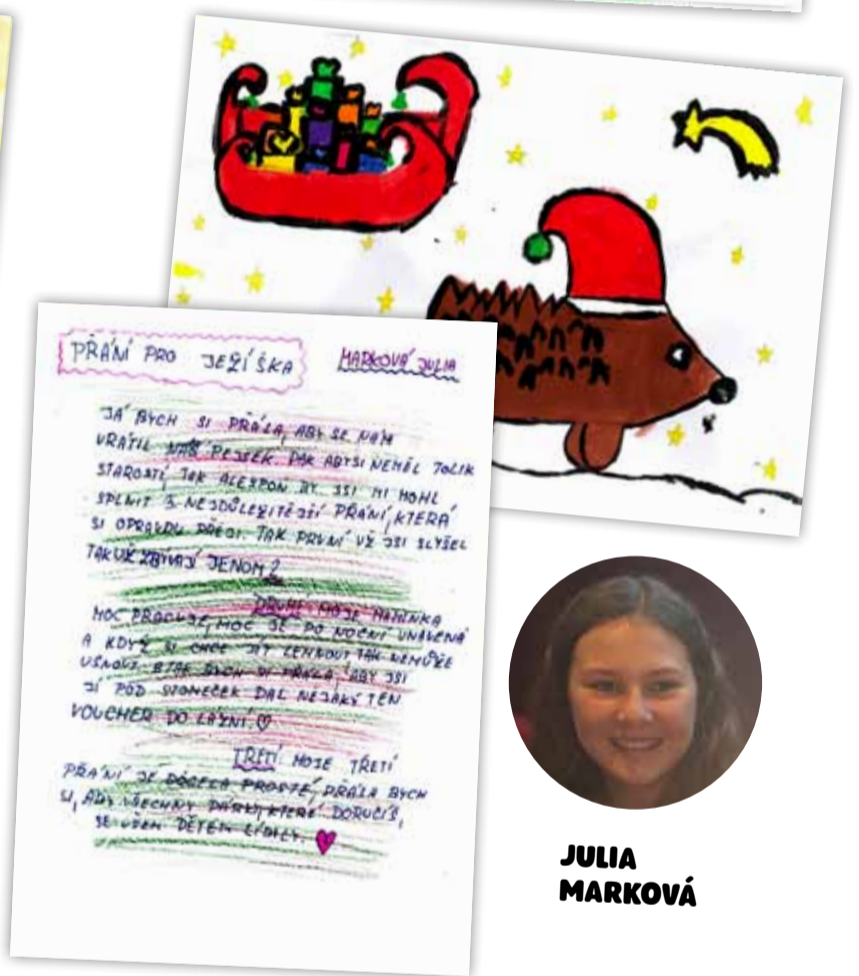 PŘÁNÍ PRO JEŽÍŠKA
MARKOVÁ JULIA
JÁ BYCH SI PŘÁLA, ABY SE NÁM
VRÁTIL NÁŠ PEJSEK. PAK ABYSI NEMĚL TOLIK
STAROSTÍ, TAK ALESPOŇ BY JSI MI MOHL
SPLNIT 3 NEJDŮLEŽITĚJŠÍ PŘÁNÍ, KTERÁ
SI OPRAVDU PŘEJI. TAK PRVNÍ UŽ JSI SLYŠEL
TAK UŽ ZBÝVAJÍ JENOM 2
DRUHÉ MOJE MAMINKA
MOC PRACUJE, MOC JE PO NOČNÍ UNAVENÁ
A KDYŽ SI CHCE JÍT LEHNOUT TAK NEMŮŽE
USNOUT. A TAK BYCH SI PŘÁLA, ABY JSI
JÍ POD STOMEČEK DAL NEJAKÝ TEN
VOUCHER DO LÁZNÍ. ♡
TŘETÍ MOJE TŘETÍ
PŘÁNÍ JE DOCELA PROSTÉ, PŘÁLA BYCH
SI, ABY VŠECHNY DÁRKY, KTERÉ DORUČÍŠ,
SE VŠEM DĚTEM LÍBILY.
JULIA
MARKOVÁ